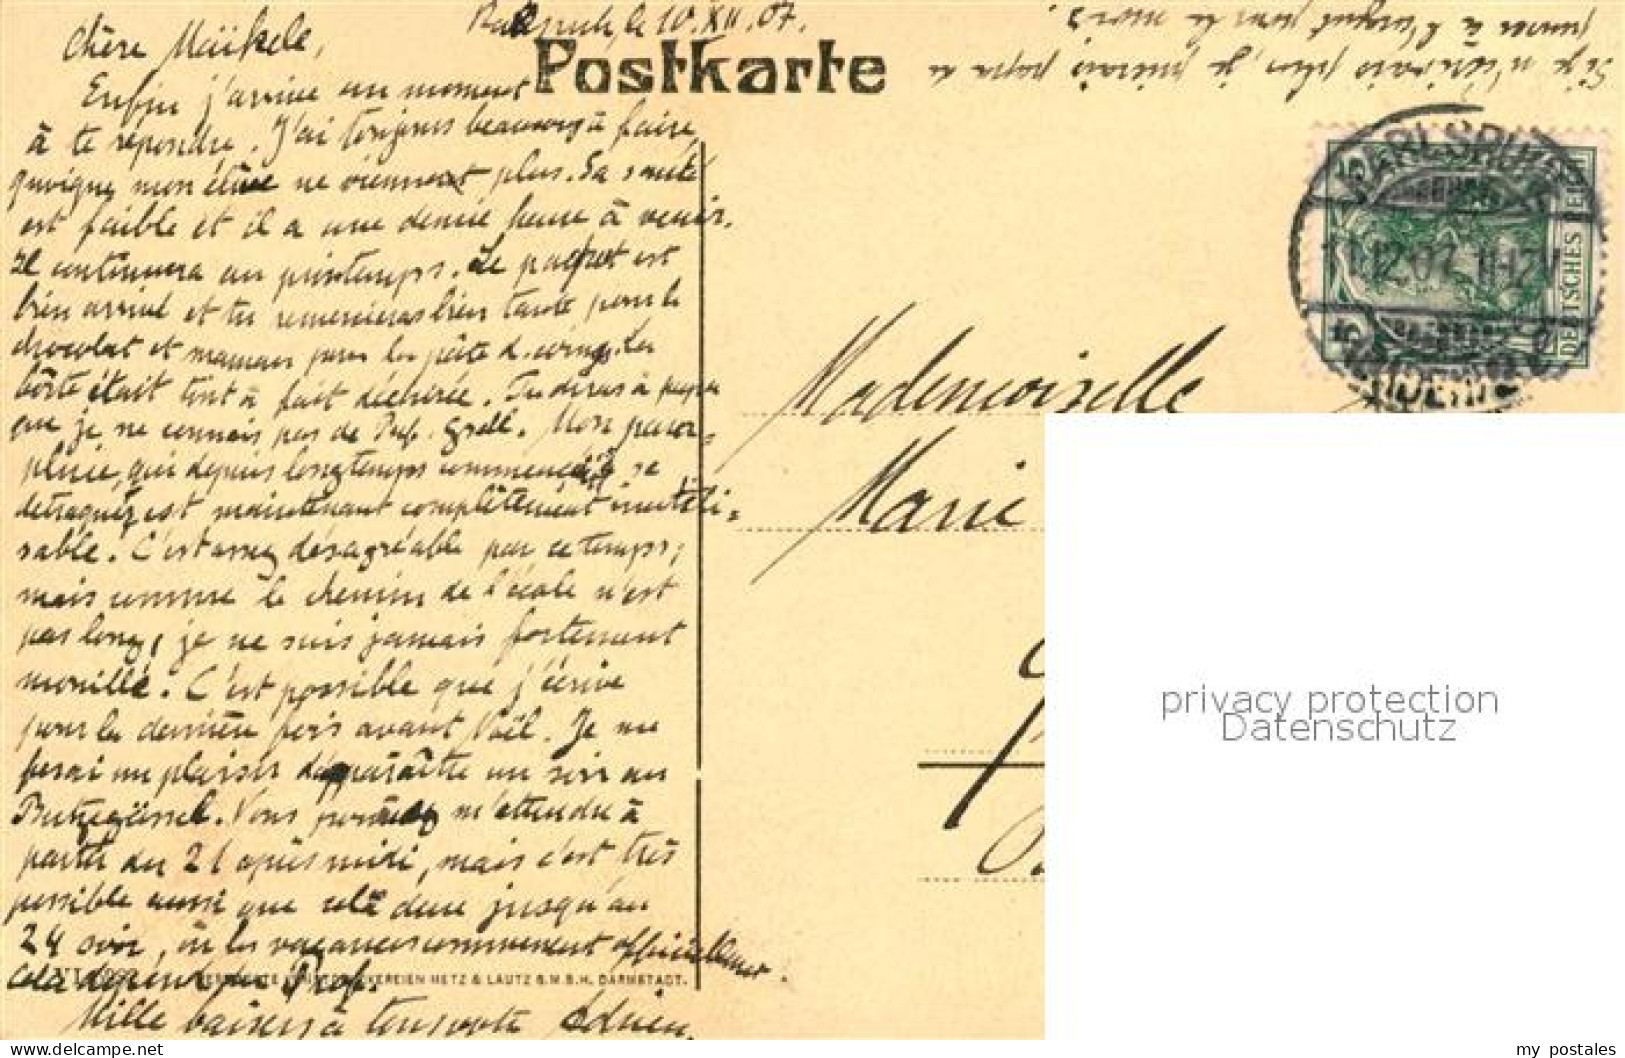 Karlsruhe, le 10.XII.07.
Chère Maïkele,
Postkarte
Enfin j'arrive un moment
à te répondre. J'ai toujours beaucoup à faire,
quoique mon élève ne viennent plus. Sa santé
est faible et il a une demie heure à venir.
Il continuera au printemps. Le paquet est
bien arrivé et tu remercieras bien tante pour le
chocolat et maman pour la pâte de coings. La
boîte était tout à fait déchirée. Tu diras à papa
que je ne connais pas de Prof. Grell. Mon para-
pluie, qui depuis longtemps commençait se
détraquer est maintenant complètement inutili-
sable. C'est assez désagréable par ce temps,
mais comme le chemin de l'école n'est
pas long, je ne suis jamais fortement
mouillé. C'est possible que j'écrive
pour la dernière fois avant Noël. Je me
ferai un plaisir d'apparaître un soir au
Vous pouvez m'attendre à
partir du 21 après midi, mais c'est très
possible aussi que cela dure jusqu'au
24 soir, où les vacances commencent officiellement.
cela dépend du Prof.
Mille baisers à tous votre Adrien.
Si je n'écrirais plus, je prierais papa de
penser à l'argent pour le mois.
KARLSRUHE
12.07. 11-12
DEUTSCHES REICH
5
5
Mademoiselle
Marie
KUNSTDRUCKEREIEN METZ & LAUTZ G.M.B.H. DARMSTADT.
privacy protection
Datenschutz
my postales
delcampe.net Collectors' Marketplace